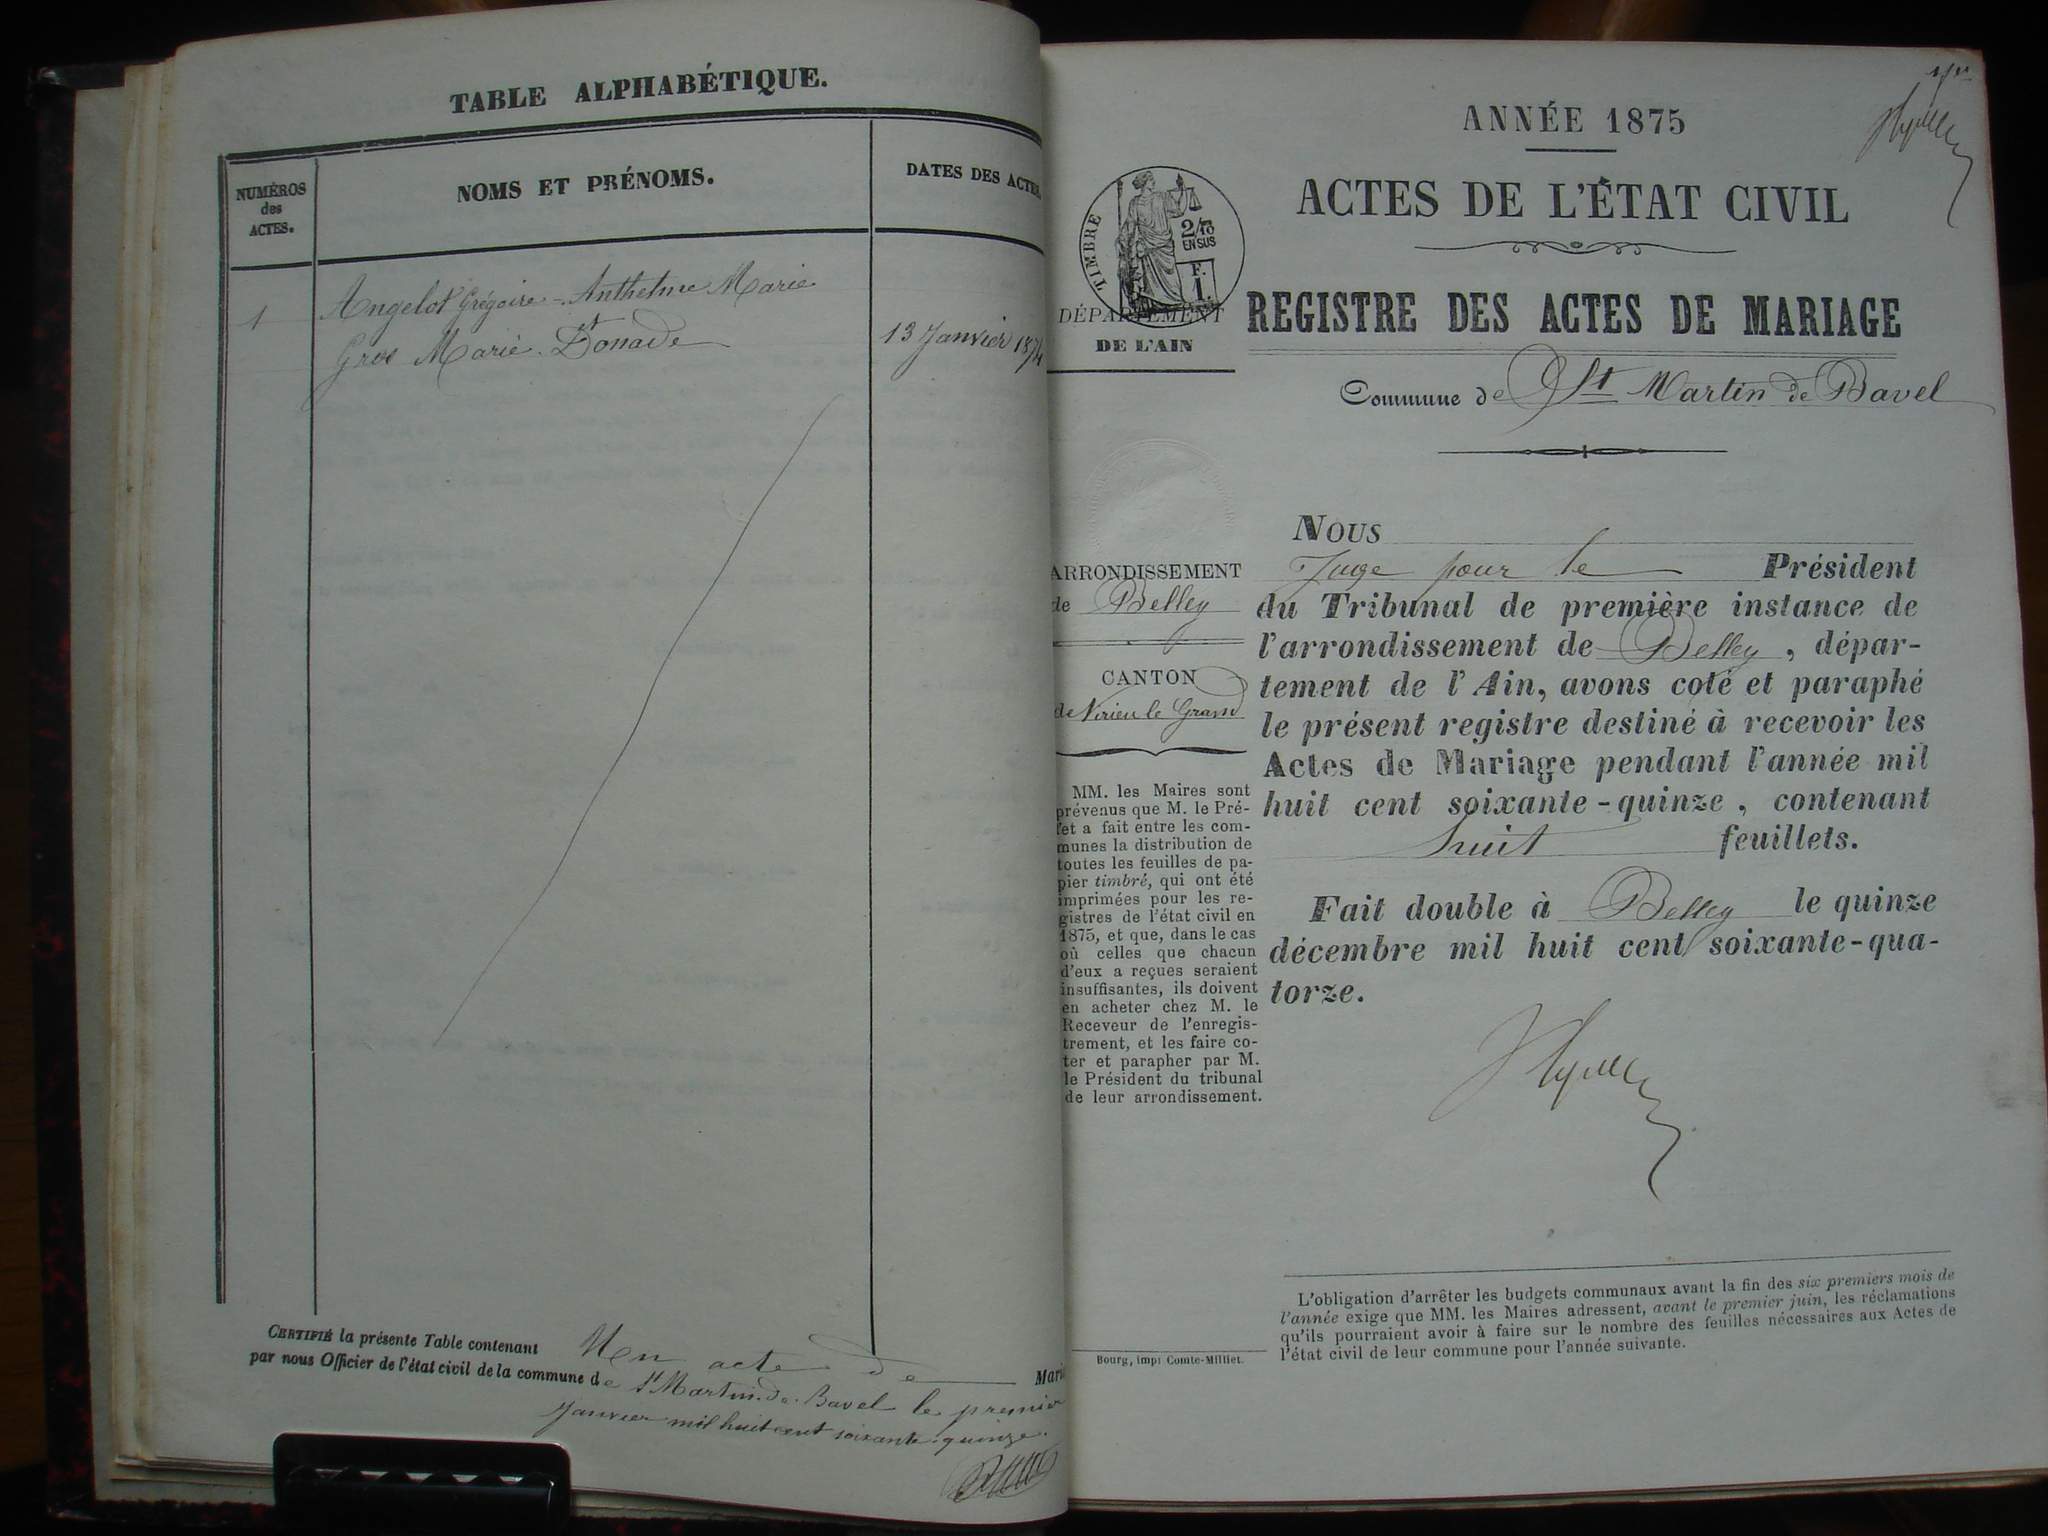 TABLE ALPHABÉTIQUE.
NUMÉROS
des
ACTES.
NOMS ET PRÉNOMS.
DATES DES ACTES.
1
Angelot Grégoire-Anthelme Marie
Gros Marie Donade
13 Janvier 1874
CERTIFIÉ la présente Table contenant Un acte de Mari
par nous Officier de l'état civil de la commune de St Martin-de-Bavel le premier
Janvier mil huit cent soixante quinze.
ANNÉE 1875
ACTES DE L'ÉTAT CIVIL
TIMBRE
2/10
EN SUS
F.
1.
DÉPARTEMENT
DE L'AIN
REGISTRE DES ACTES DE MARIAGE
Commune de St Martin de Bavel
ARRONDISSEMENT
de Belley
CANTON
de Virieu le Grand
MM. les Maires sont
prévenus que M. le Pré-
fet a fait entre les com-
munes la distribution de
toutes les feuilles de pa-
pier timbré, qui ont été
imprimées pour les re-
gistres de l'état civil en
1875, et que, dans le cas
où celles que chacun
d'eux a reçues seraient
insuffisantes, ils doivent
en acheter chez M. le
Receveur de l'enregis-
trement, et les faire co-
ter et parapher par M.
le Président du tribunal
de leur arrondissement.
NOUS
Juge pour le Président
du Tribunal de première instance de
l'arrondissement de Belley, dépar-
tement de l'Ain, avons coté et paraphé
le présent registre destiné à recevoir les
Actes de Mariage pendant l'année mil
huit cent soixante-quinze, contenant
huit feuillets.
Fait double à Belley le quinze
décembre mil huit cent soixante-qua-
torze.
L'obligation d'arrêter les budgets communaux avant la fin des six premiers mois de
l'année exige que MM. les Maires adressent, avant le premier juin, les réclamations
qu'ils pourraient avoir à faire sur le nombre des feuilles nécessaires aux Actes de
l'état civil de leur commune pour l'année suivante.
Bourg, imp. Comte-Milliet.